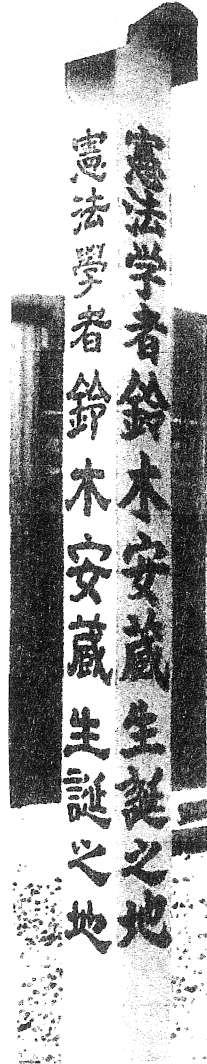 憲法学者鈴木安蔵生誕之地
憲法學者鈴木安蔵生誕之地